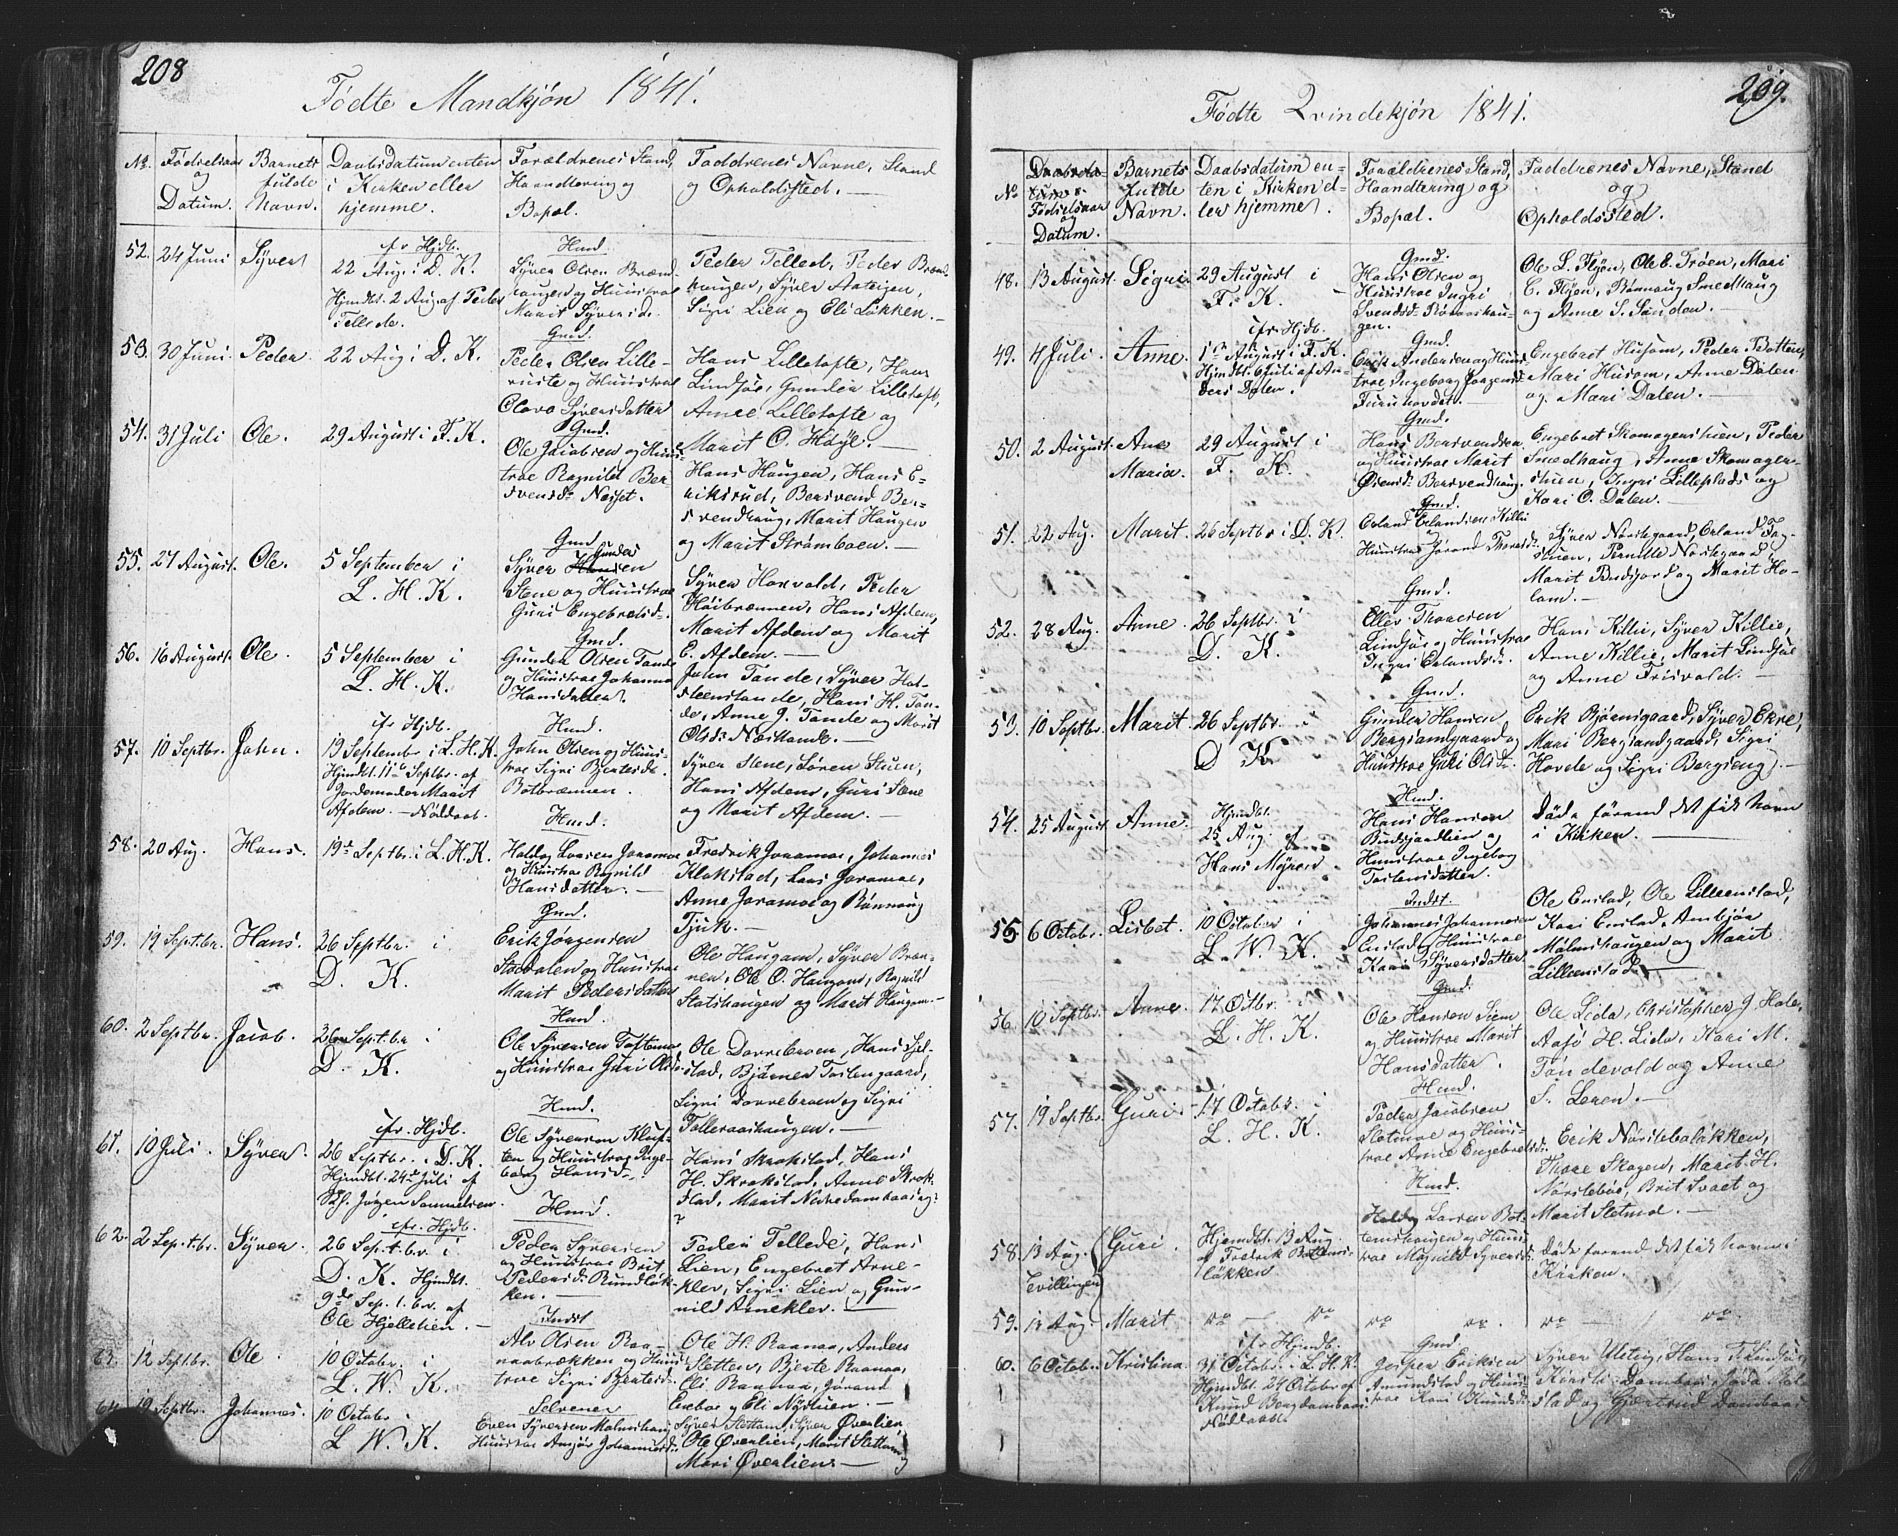 208
Födte Mandkjön 1841.
№.
Födselsaar
og
Datum.
Barnets
fulde
Navn.
Daabsdatum enten
i Kirken eller
hjemme.
Forældrenes Stand,
Haandtering og
Bopæl.
Faddrenes Navne, Stand
og Opholdssted.
52. 24 Juni
Syver
cfr Hjdb.
22 Aug. i D. K.
Hjmdbt. 2 Aug. af Peder
Tellede.
Huusm.
Syver Olsen
og Huustroe
Marit Syversd.
Peder Tellied, Peder
Sigri Lien og Eli Lökken.
53. 30 Juni.
Peder.
22 Aug i D. K.
Gmd.
Peder Olsen Lille-
ruste og Huustroe
Olava Syversdatter
Hans Lilletofte, Hans
Lindsöe, Gunder Lilletofte,
Anne Lilletofte og
Marit O. Höye.
54. 31 Juli
Ole.
29 August i F. K.
Gmd.
Ole Jacobsen og Huus-
troe Ragnild Ber-
svensd. Næset.
Hans Haugen, Hans E-
riksrud, Bersvend Ber-
svendhaug, Marit Haugen
og Marit Strömboen.
55. 27 August.
Ole.
5 September i
L. H. K.
Gmd
Syver Gunder
Stene og Huustroe
Guri Engebretsd.
Syver Horvald, Peder
Höibrænnen, Hans Afdem,
Marit Afdem og Marit
E. Afdem.
56. 16 August.
Ole.
5 September i
L. H. K.
Gmd.
Gunder Olsen Tande
og Huustroe Johanna
Hansdatter.
John Tande, Syver Hol-
steenstande, Hans H. Tan-
de, Anne J. Tande og Marit
Olsd. Næstande.
57. 10 Septbr.
John.
cfr Hjdb.
19 Septembr i L. H. K.
Hjmdbt. 11te Septbr. af
Jordemoder Marit
Afdem. — Nöddaab.
Huusm.
John Olsen og Huus-
troe Sigri Bentesd.
Botbrænnen.
Syver Stene, Sören Stuen,
Hans Afdem, Guri Stene
og Marit Afdem.
58. 20 Aug.
Hans.
19de Septbr. i L. H. K.
Huusm.
Haldog Larsen Joramoe
og Huustroe Ragnild
Hansdatter.
Fredrik Joramoe, Johannes
Klokstad, Lars Joramoe,
Anne Joramoe og Rönnoug
Tjuk.
59. 19 Septbr.
Hans.
26 Septbr. i
D. K.
Gmd.
Erik Jörgensen
Stordalen og Huustroe
Marit Pedersdatter
Ole Haugam, Syver Bræn-
nen, Ole O. Haugam, Ragnild
Stathaugen og Marit Haugen.
60. 2 Septbr.
Jacob.
26 Septbr i
D. K.
Huusm.
Ole Syversen Toftemoe
og Huustroe Guri Olsd.
Ole Dovrebroen, Hans Sjel-
stad, Björner Toslengaard,
Sigri Dovrebroen og Sigri
Tolleraashaugen.
61. 10 Juli
Syver.
cfr. Hjdb.
26 Septbr. i D. K.
Hjmdbt. 24de Juli af
Jörgen Sommelsen
Huusm.
Ole Syversen Kluf-
ten og Huustroe Inge-
borg Hansd.
Hans Skrokstad, Hans
H. Skrokstad, Anne Skrok-
stad, Marit Nedredombaas og
?
62. 2 Septbr.
Syver.
cfr. Hjdb.
26 Septbr. i
D. K. Hjmdbt.
9de Sep.t.br. af
Ole Hjellelien.
Huusm.
Peder Syversen
og Huustroe Brit
Pedersd. Rundlök-
ken.
Peder Tellede, Hans
Lien, Engebret Arne-
klev, Sigri Lien og Gun-
nild Arneklev.
63. 12 Septbr.
Ole
10 Octobr. i
L. W. K.
Indst
Alv Olsen Raa-
naabrækken og Huus-
troe Sigri Bentesd.
Ole H. Raanaa, Anders
Sletten, Bjerte Raanaa,
Eli Raanaa, Jorand
Eneboe og Eli Nystuen.
64. 19 Septbr.
Johannes.
10 Octobr i
L W. K.
Selveier
Even Syversen Malmshaug
Huustroe Ansjör Johannesd.
Syver Slettom, Syver Överlien,
Ole Överlien, Marit Slettom og
Mari Överlien.
209.
Födte Qvindekjön 1841.
№
Födselsaar
og
Datum.
Barnets
fulde
Navn.
Daabsdatum en-
ten i Kirken el-
ler hjemme.
Forældrenes Stand,
Haandtering og
Bopæl.
Faddrenes Navne, Stand
og
Opholdssted.
48. 13 August.
Sigri
29 August i
F. K.
Gmd.
Hans Olsen og
Huustroe Ingri
Svendsd.
Ole L. Flyen, Ole E. Tröen, Mari
E. Flyen, Rönnaug Smedhaug
og Anne S. Sandon.
49. 4 Juli.
Anne.
cfr Hjdb.
1te August i F. K.
Hjmdbt. 6 Juli af An-
ders Dalen.
Gmd.
Erik Andersen og Huus-
troe Ingeborg Jörgensd.
Furuhovdet.
Engebret Husom, Peder Botten,
Mari Husom, Anne Dalen
og Mari Dalen.
50. 2 August.
Ane
Maria.
29 August i
F. K.
Gmd.
Hans Bersvendsen
og Huustroe Marit
Bersvendhaug.
Engebret Skomagerstuen, Peder
Smedhaug, Anne Skomager-
stuen, Ingri Lilleplads og
Kari O. Dalen.
51. 22 Aug.
Marit.
26 Septbr i D. K.
Gmd.
Erland Erlandsen Killi
og
Huustroe Jorand Thoresd.
Syver Norstegaard, Erland Jag-
stuen, Pernille Norstegaard,
Marit Budsjord og Marit Ho-
lom.
52. 28 Aug.
Anne
26 Septbr. i
D. K.
Gmd.
Ellev Thoresen
Lindsöe, Huustroe
Ingri Erlandsd.
Hans Killie, Syver Killie,
Anne Killie, Marit Lindsöe
og Anne Frisvold.
53. 10 Septbr.
Marit
26 Septbr. i
D. K.
Gmd.
Gunder Hansen
Bergsandgaard og
Huustroe Guri Olsd.
Erik Björnsgaard, Syver Ekre,
Mari Bergsandgaard, Sigri
Hovde og Sigri Bergseng.
54. 25 August.
Anne.
Hjmdbt.
25 Aug. af
Hans Myren
Huusm.
Hans Hansen
Budsjordlien og
Huustroe Ingebog
Torstensdatter.
Död förend det fik Navn
i Kirken.
55 6 Octobr.
Lisbet.
10 October i
L. W. K.
Indst.
Johannes Johannesen
Enstad og Huustroe
Kari Syversdatter
Ole Enstad, Ole Lilleenstad,
Kari Enstad, Ambjör
Malmshaugen og Marit
Lilleenstad.
56 10 Septbr.
Anne.
17 Octbr. i
L. H. K.
Gmd.
Ole Hansen Siem
og Huustroe Marit
Hansdatter.
Ole Lida, Christopher J. Hole,
Aasö H. Lida, Kari M.
Töndevold og Anne
S. Leren.
57. 19 Septbr.
Guri
17 Octobr. i
L. H. K.
Huusm.
Peder Jacobsen
Sletmoe og Huus-
troe Anne Engebretsd.
Erik Nörstebölökken,
Thore Skogen, Marit H.
Nörsteböe, Brit Svaet og
Marit Sletmoe.
58. 13 Aug.
Tvillinger
Guri.
Hjemdbt. 13 Aug.
af Fredrik Bottens-
lökken
Huusm.
Haldog Larsen Bot-
tenshaugen og Huus-
troe Magnild Syversd.
Död förend det fik Navn i
Kirken.
59. 13 Aug.
Marit
do — do
do do.
do — do.
60. 6 Octobr.
Kristina.
cfr Hjmdb.
31 Octobr. i L. H. K.
Hjmdbt. 24 Octobr. af
Knud Bergdombaas
Nöddaab.
Gmd.
Jesper Eriksen
Amundstad og Huus-
troe Kari Knudsd.
Syver Ulevig, Hans T. Lindsöe,
Kirsti Dombaas,
stad og Gjertrud Dombaas